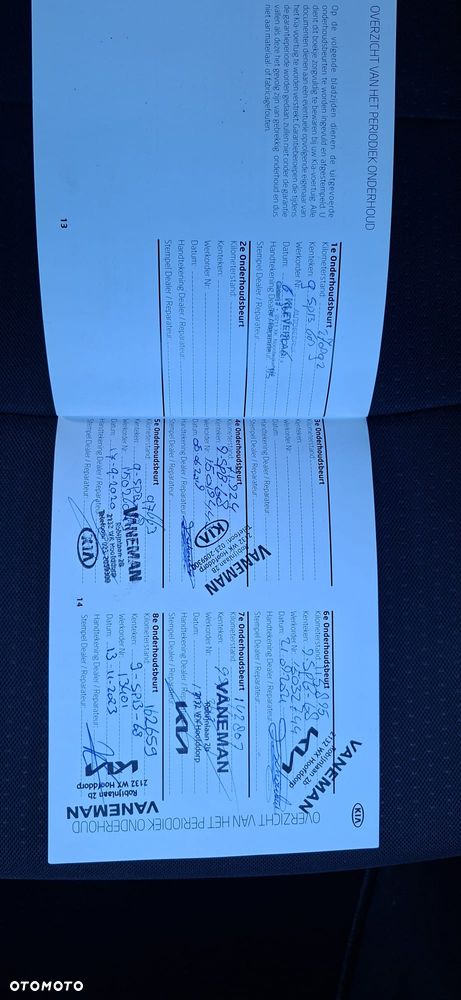 OVERZICHT VAN HET PERIODIEK ONDERHOUD
Op de volgende bladzijden dienen de uitgevoerde
onderhoudsbeurten te worden ingevuld en afgestempeld. U
dient dit boekje zorgvuldig te bewaren bij uw Kia-voertuig. Alle
documenten dienen aan een eventuele opvolgende eigenaar van
het Kia-voertuig te worden verstrekt. Garantieberoepen die tijdens
de garantieperiode worden gedaan, zullen niet onder de garantie
vallen als deze het gevolg zijn van gebrekkig onderhoud en dus
niet aan materiaal- of fabricagefouten.
1e Onderhoudsbeurt
Kilometerstand:
Kenteken: 9-SPB
Werkorder Nr.:
Datum:
Handtekening Dealer / Reparateur:
Stempel Dealer / Reparateur:
2e Onderhoudsbeurt
Kilometerstand:
Kenteken:
Werkorder Nr.:
Datum:
Handtekening Dealer / Reparateur:
Stempel Dealer / Reparateur:
13
3e Onderhoudsbeurt
Kilometerstand:
Kenteken:
Werkorder Nr.:
Datum:
Handtekening Dealer / Reparateur:
Stempel Dealer / Reparateur:
4e Onderhoudsbeurt
Kilometerstand:
Kenteken:
Werkorder Nr.:
Datum:
Handtekening Dealer / Reparateur:
Stempel Dealer / Reparateur:
KIA
VANEMAN
Robijnlaan 2b
2132 WX Hoofddorp
5e Onderhoudsbeurt
Kilometerstand:
Kenteken: 9-SPB
Werkorder Nr.:
Datum: 14-9-2020
Handtekening Dealer / Reparateur:
Stempel Dealer / Reparateur:
VANEMAN
Robijnlaan 2B
2132 WX Hoofddorp
KIA
14
KIA
OVERZICHT VAN HET PERIODIEK ONDERHOUD
6e Onderhoudsbeurt
Kilometerstand:
Kenteken: 9-SPB-68
Werkorder Nr.:
Datum:
Handtekening Dealer / Reparateur:
Stempel Dealer / Reparateur:
KIA
VANEMAN
Robijnlaan 2b
2132 WX Hoofddorp
7e Onderhoudsbeurt
Kilometerstand:
Kenteken:
Werkorder Nr.:
Datum:
Handtekening Dealer / Reparateur:
Stempel Dealer / Reparateur:
KIA
VANEMAN
Robijnlaan 2b
2132 WX Hoofddorp
8e Onderhoudsbeurt
Kilometerstand: 162659
Kenteken: 9-SPB-68
Werkorder Nr.: 13401
Datum: 13-11-2023
Handtekening Dealer / Reparateur:
Stempel Dealer / Reparateur:
VANEMAN
Robijnlaan 2b
2132 WX Hoofddorp
OTOMOTO